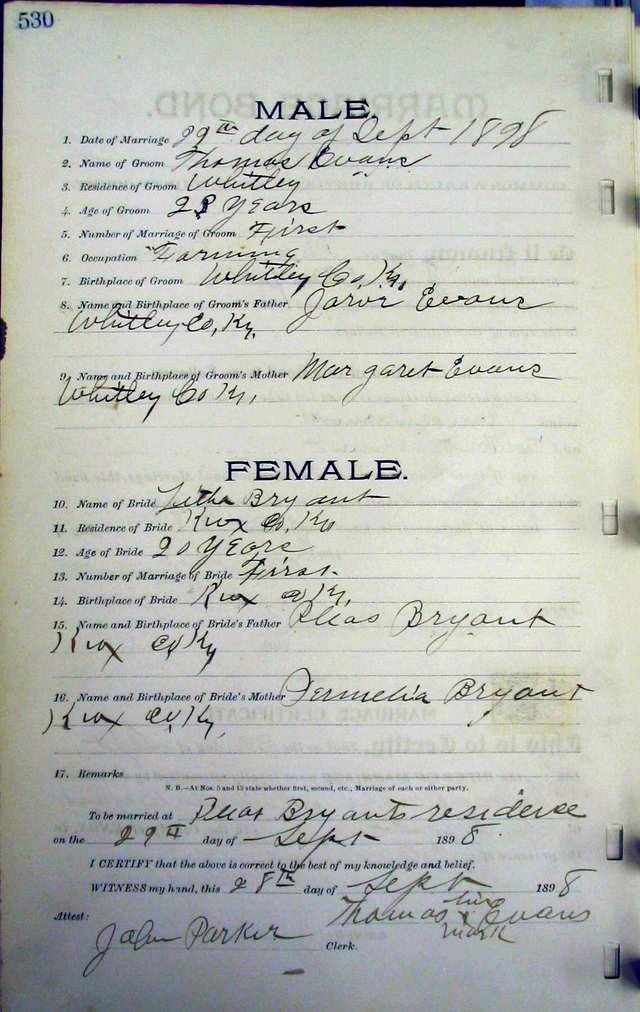 530
MALE.
1. Date of Marriage 29th day of Sept 1898
2. Name of Groom Thomas Evans
3. Residence of Groom Whitley
4. Age of Groom Years
5. Number of Marriage of Groom First
6. Occupation Farming
7. Birthplace of Groom Whitley Co, Ky,
8. Name and Birthplace of Groom's Father Evans
Whitley Co, Ky,
9. Name and Birthplace of Groom's Mother Margaret Evans
Whitley Co Ky,
FEMALE.
10. Name of Bride Bryant
11. Residence of Bride Knox Co, Ky
12. Age of Bride 20 Years
13. Number of Marriage of Bride First
14. Birthplace of Bride Knox Co Ky,
15. Name and Birthplace of Bride's Father Bryant
Knox Co, Ky
16. Name and Birthplace of Bride's Mother Bryant
Knox Co, Ky,
17. Remarks
N. B.—At Nos. 5 and 13 state whether first, second, etc., Marriage of each or either party.
To be married at Bryants residense
on the 29th day of Sept 1898.
I CERTIFY that the above is correct to the best of my knowledge and belief.
WITNESS my hand, this 28th day of Sept 1898
Thomas his x mark Evans
Attest:
John Parker Clerk.